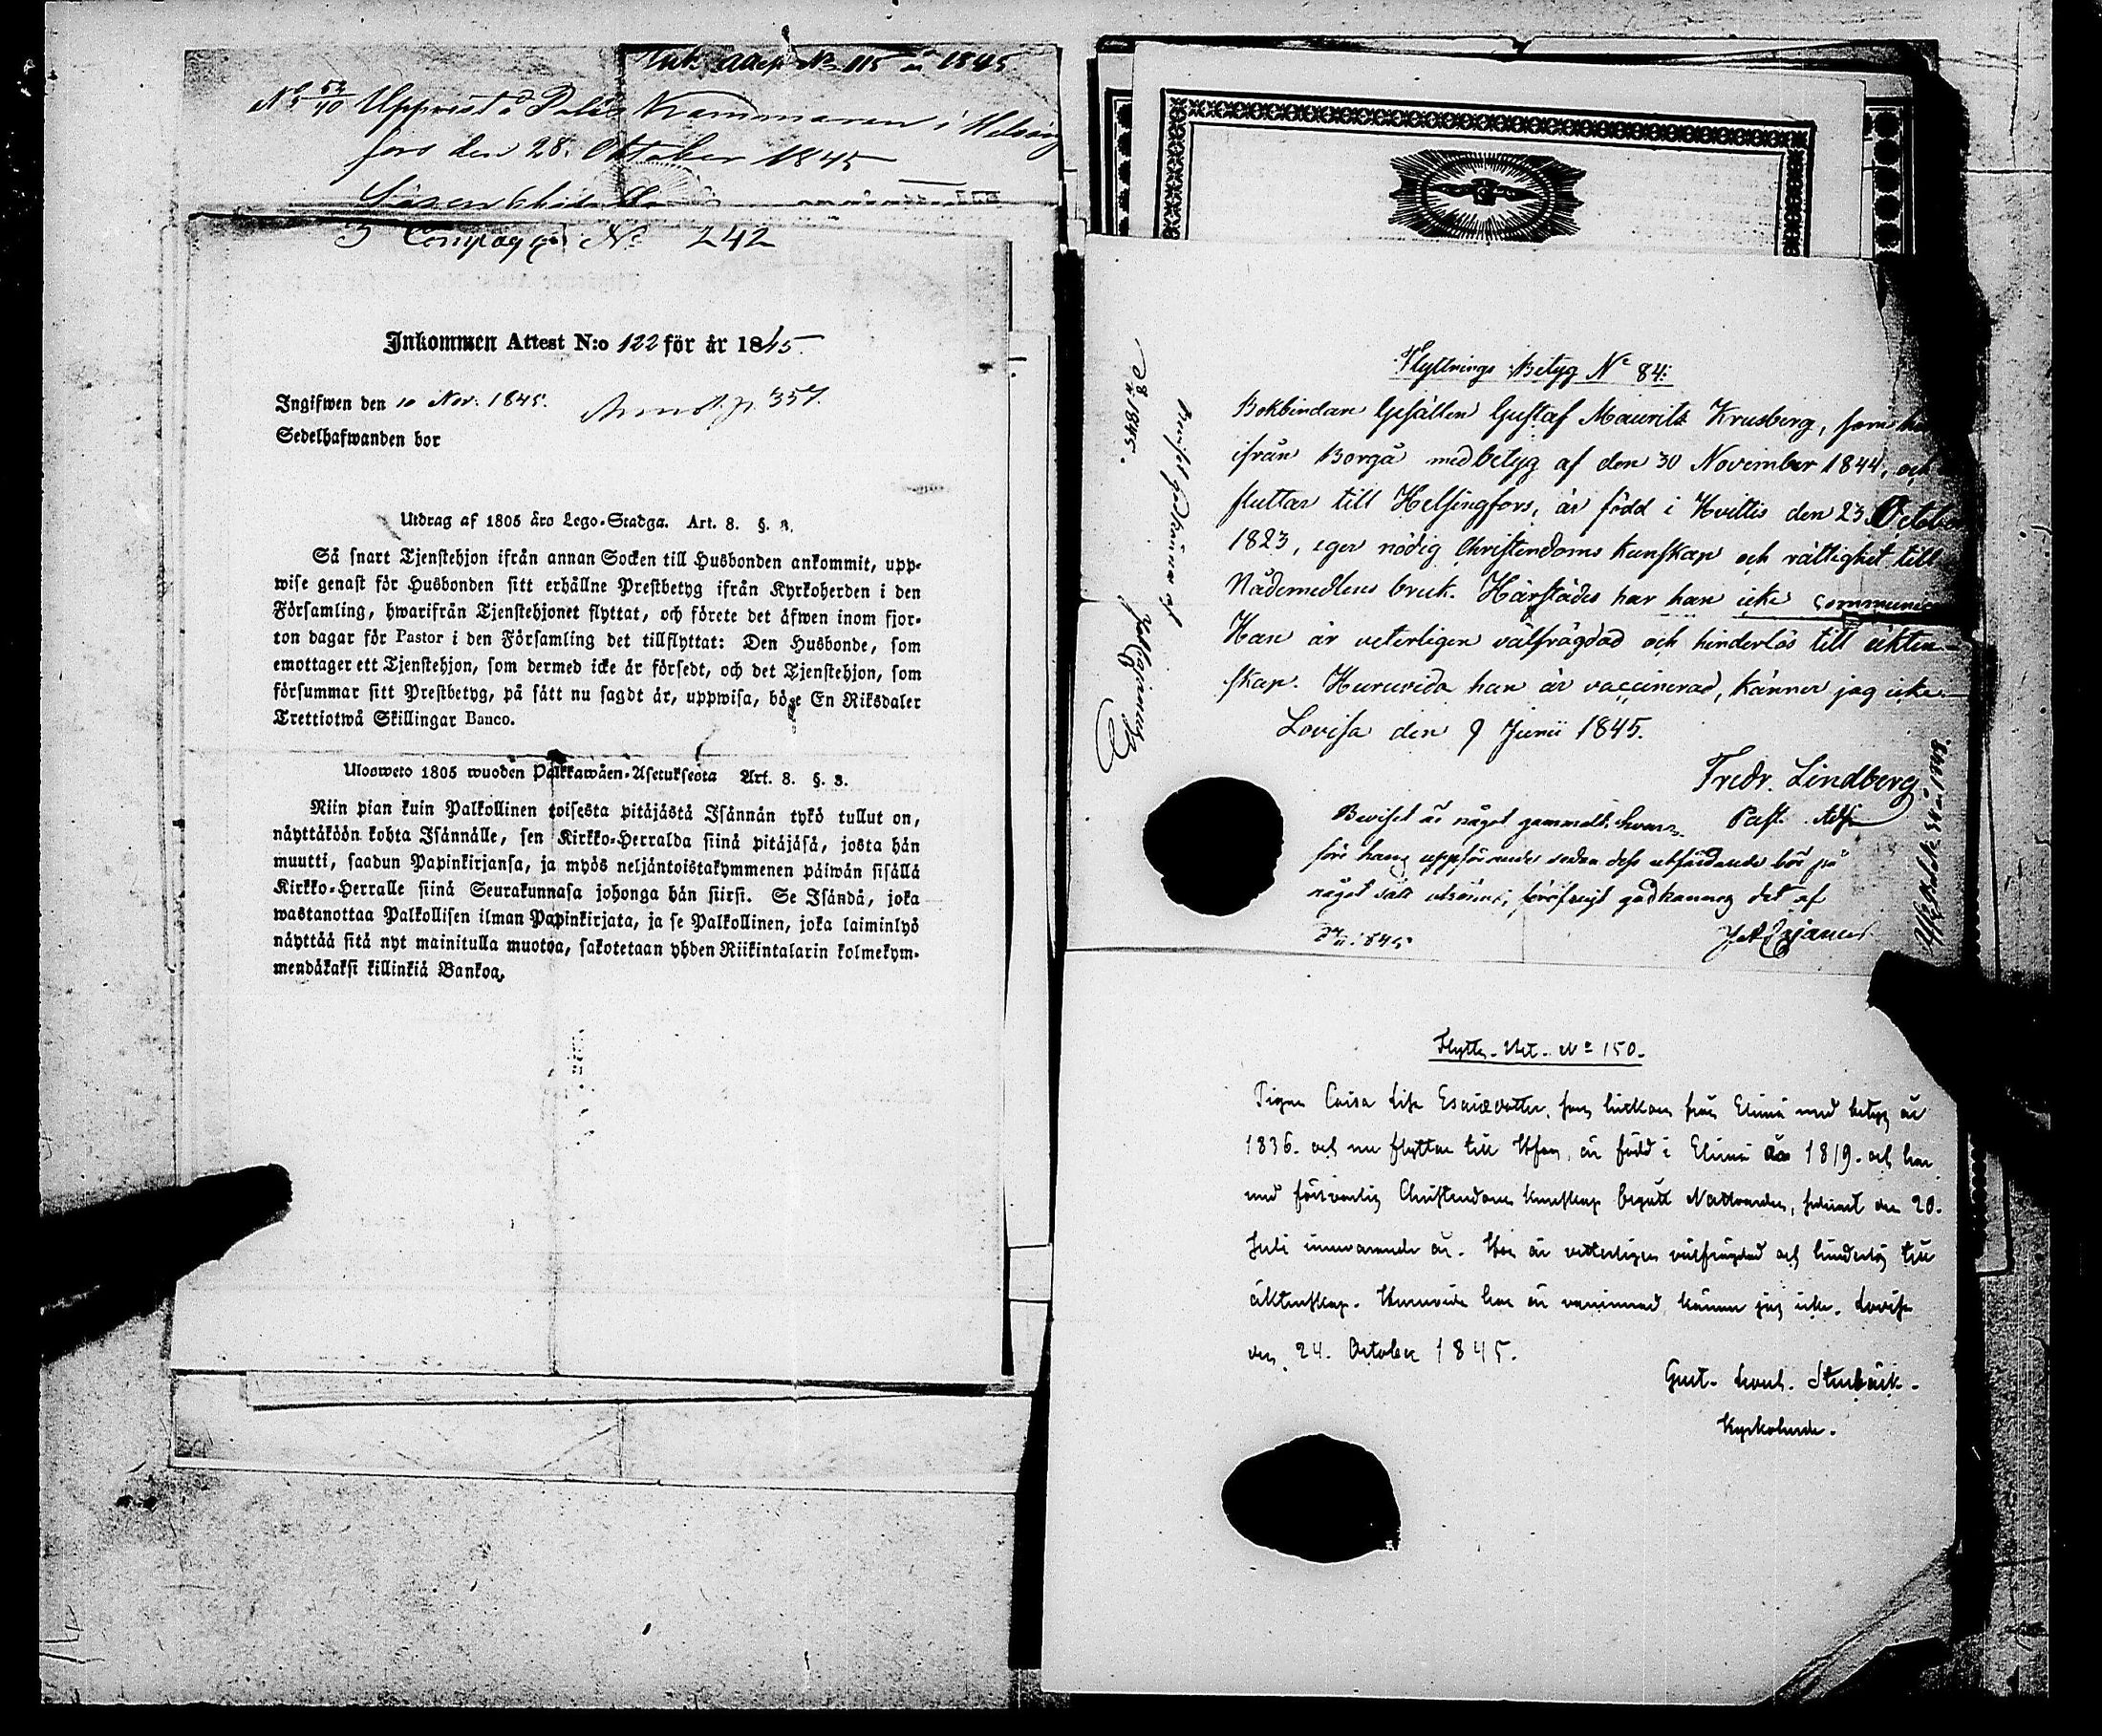 Ink. Attest No 115 år 1845
No 52/40 Uppvist å Polis Kammaren i Helsing
fors den 28. Oktober 1845
3 Compag No 242
Inkommen Attest N:o 122 för år 1845.
Ingifwen den 10 Nov. 1845. p. 357.
Sedelhafwanden bor
Utdrag af 1805 års Lego-Stadga. Art. 8. §. 3.
Så snart Tjenstehjon ifrån annan Socken till Husbonden ankommit, upp-
wise genast för Husbonden sitt erhållne Prestbetyg ifrån Kyrkoherden i den
Församling, hwarifrån Tjenstehjonet flyttat, och förete det äfwen inom fjor-
ton dagar för Pastor i den Församling det tillflyttat: Den Husbonde, som
emottager ett Tjenstehjon, som dermed icke är försedt, och det Tjenstehjon, som
försummar sitt Prestbetyg, på sätt nu sagdt är, uppwisa, böte En Riksdaler
Trettiotwå Skillingar Banco.
Ulosweto 1805 wuoden Palkkawäen-Asetuksesta Art. 8. §. 3.
Niin pian kuin Palkollinen toisesta pitäjästä Isännän tykö tullut on,
näyttäköön kohta Isännälle, sen Kirkko-Herralda siinä pitäjäsä, josta hän
muutti, saadun Papinkirjansa, ja myös neljäntoistakymmenen päiwän sisällä
Kirkko-Herralle siinä Seurakunnasa johonga hän siirsi. Se Isändä, joka
wastanottaa Palkollisen ilman Papinkirjata, ja se Palkollinen, joka laiminlyö
näyttää sitä nyt mainitulla muotoa, sakotetaan yhden Riikintalarin kolmekym-
mendäkaksi killinkiä Bankoa.
Flyttnings Betyg No 84.
Bokbindare Gesällen Gustaf Mauritz Krusberg, som
ifrån Borgå med betyg af den 30 November 1844, och
fluttar till Helsingfors, är född i Hvittis den 23 October
1823, eger nödig Christendoms kunskap och rättighet till
Nådemedlens bruk. Härstädes har han icke communic
Han är veterligen välfrägdad och hinderlös till äkten-
skap. Huruvida han är vaccinerad, känner jag icke.
Lovisa den 9 Junii 1845.
Fredr. Lindberg
Past. Adj.
Beviset är något gammalt, hvar-
före hans uppförande sedan dess utfärdande bör på
något sätt utrönas; godkännes det af
Flyttn. Att. No 150.
Pigan Caisa Lisa Esaiædotter, som hitkom från Elimä med betyg år
1836. och nu flyttar till Hfors, är född i Elimä år 1819. och har
med försvarlig Christendoms kunskap begått Nattvarden, senast den 20.
Juli innevarande år. Hon är vetterligen välfrägdad och hinderlös till
äktenskap. Huruvida hon är vaccinerad känner jag icke. Lovisa
den 24. October 1845.
Gust. Stenbäck.
Kyrkoherde.